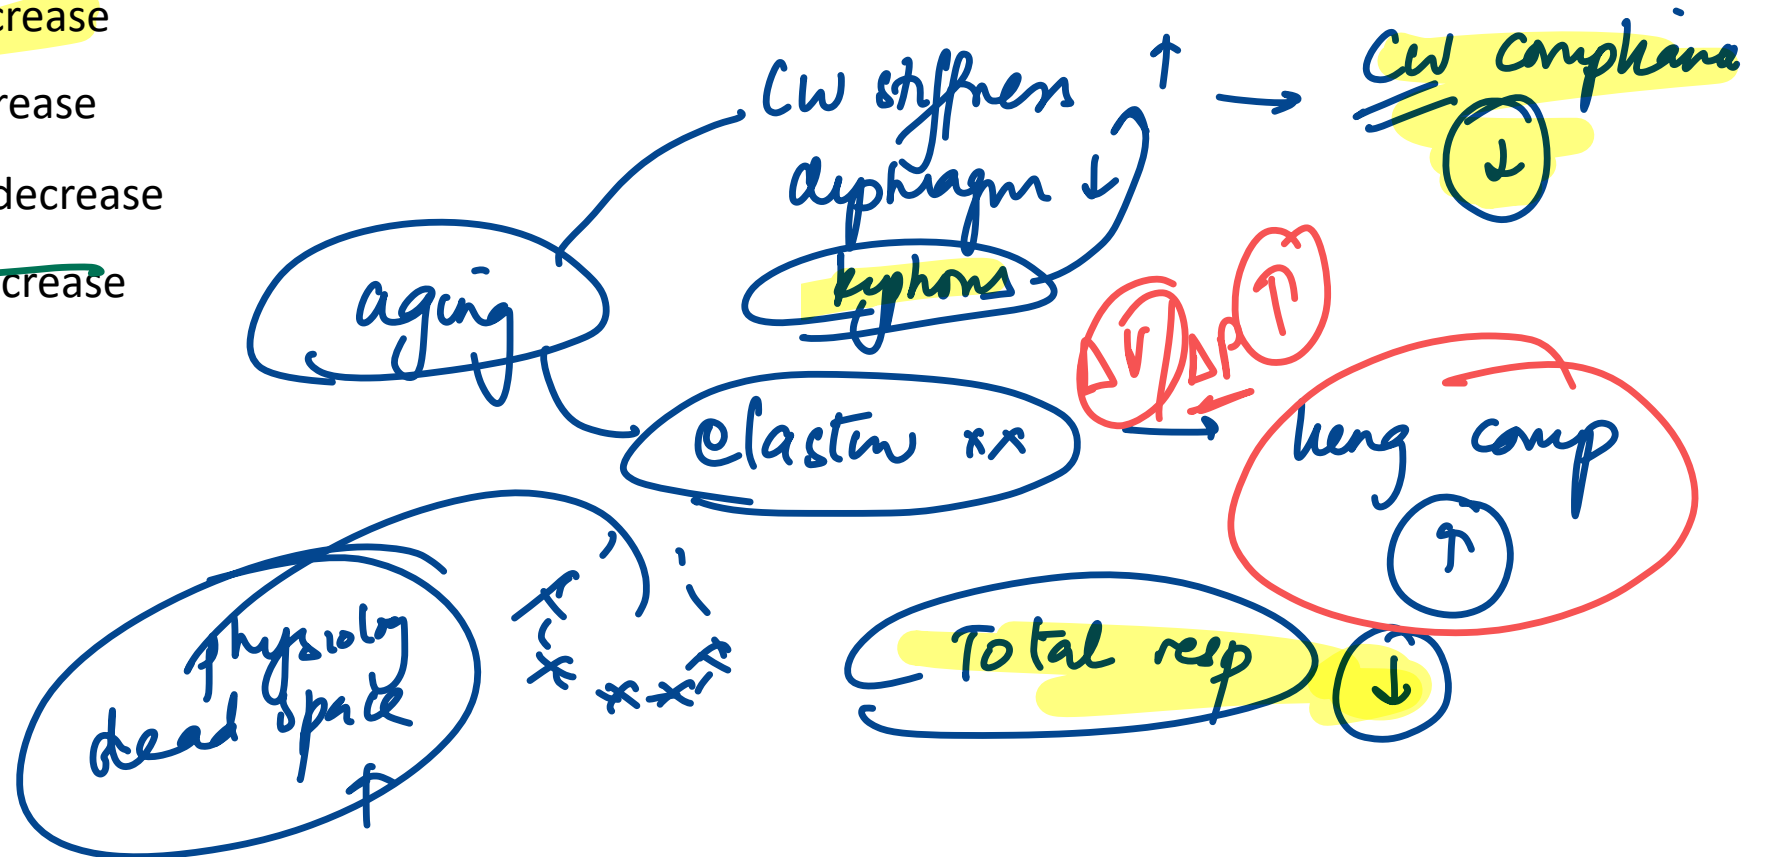 crease
rease
decrease
crease
CW stiffness ↑ → CW compliana ↓
diaphragm ↓
kyphosis
aging
ΔV/ΔP ↑
elastin xx → lung comp ↑
Total resp ↓
physiolog
dead space ↑